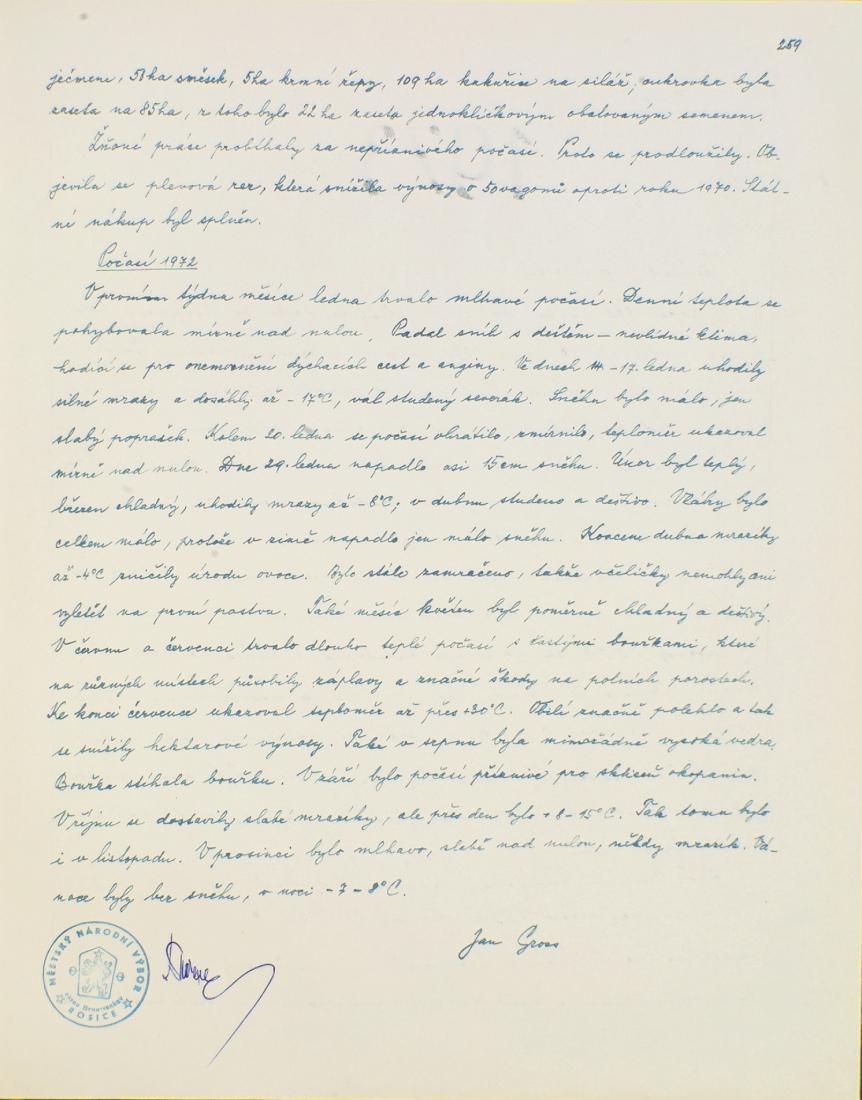 259
ječmene, 50 ha směsek, 5 ha krmné řepy, 109 ha kukuřice na siláž, cukrovka byla
zaseta na 85 ha, z toho bylo 22 ha zaseta jednoklíčkovým obalovaným semenem.
Žňové práce probíhaly za nepříznivého počasí. Proto se prodloužily. Ob-
jevila se plevová rez, která snížila výnosy o 50 vagonů oproti roku 1970. Stát-
ní nákup byl splněn.
Počasí 1972
V prvním týdnu měsíce ledna trvalo mlhavé počasí. Denní teplota se
pohybovala mírně nad nulou. Padal sníh s deštěm – nevlídné klima,
hodící se pro onemocnění dýchacích cest a anginy. Ve dnech – 17. ledna uhodily
silné mrazy a dosáhly až -17°C, vál studený severák. Sněhu bylo málo, jen
slabý poprašek. Kolem 20. ledna se počasí obrátilo, zmírnilo, teploměr ukazoval
mírně nad nulou. Dne 29. ledna napadlo asi 15 cm sněhu. Únor byl teplý,
březen chladný, uhodily mrazy až -8°C; v dubnu studeno a deštivo. Vláhy bylo
celkem málo, protože v zimě napadlo jen málo sněhu. Koncem dubna mrazíky
až -4°C zničily úrodu ovoce. Bylo stále zamračeno, takže včeličky nemohly ani
vyletět na první pastvu. Také měsíc květen byl poměrně chladný a deštivý.
V červnu a červenci trvalo dlouho teplé počasí s častými bouřkami, které
na různých místech působily záplavy a značné škody na polních porostech.
Ke konci července ukazoval teploměr až přes +30°C. Obilí značně polehlo a tak
se snížily hektarové výnosy. Také v srpnu byla mimořádně vysoká vedra.
Bouřka stíhala bouřku. V září bylo počasí příznivé pro sklizeň okopanin.
V říjnu se dostavily slabé mrazíky, ale přes den bylo +8 – 15°C. Tak tomu bylo
i v listopadu. V prosinci bylo mlhavo, slabě nad nulou, někdy mrazík. Vá-
noce byly bez sněhu, v noci -7 – 8°C.
Jan Gross
MĚSTSKÝ NÁRODNÍ VÝBOR
ROSICE